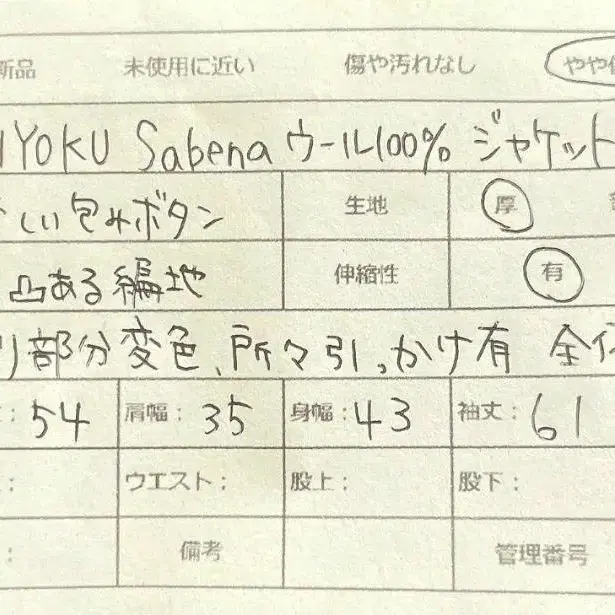 新品 未使用に近い 傷や汚れなし やや傷
IYOKU Sabena ウール100% ジャケット
しい包みボタン 生地 厚
凸ある編地 伸縮性 有
り部分変色、所々引っかけ有 全体
: 54 肩幅: 35 身幅: 43 袖丈: 61
: ウエスト: 股上: 股下:
: 備考 管理番号